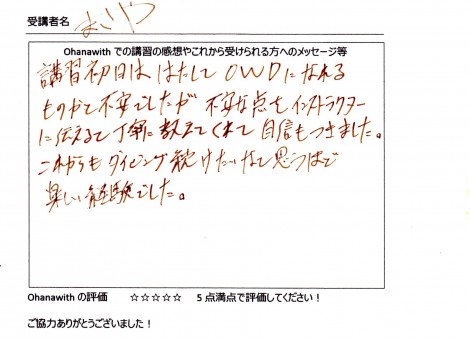 受講者名
Ohanawith での講習の感想やこれから受けられる方へのメッセージ等
講習初日は はたして OWDになれる
ものかと不安でしたが 不安な点もインストラクター
に伝えると丁寧に教えてくれて自信もつきました。
これからもダイビング続けたいなと思うほど
楽しい経験でした。
Ohanawith の評価 ☆☆☆☆☆ 5 点満点で評価してください！
ご協力ありがとうございました！